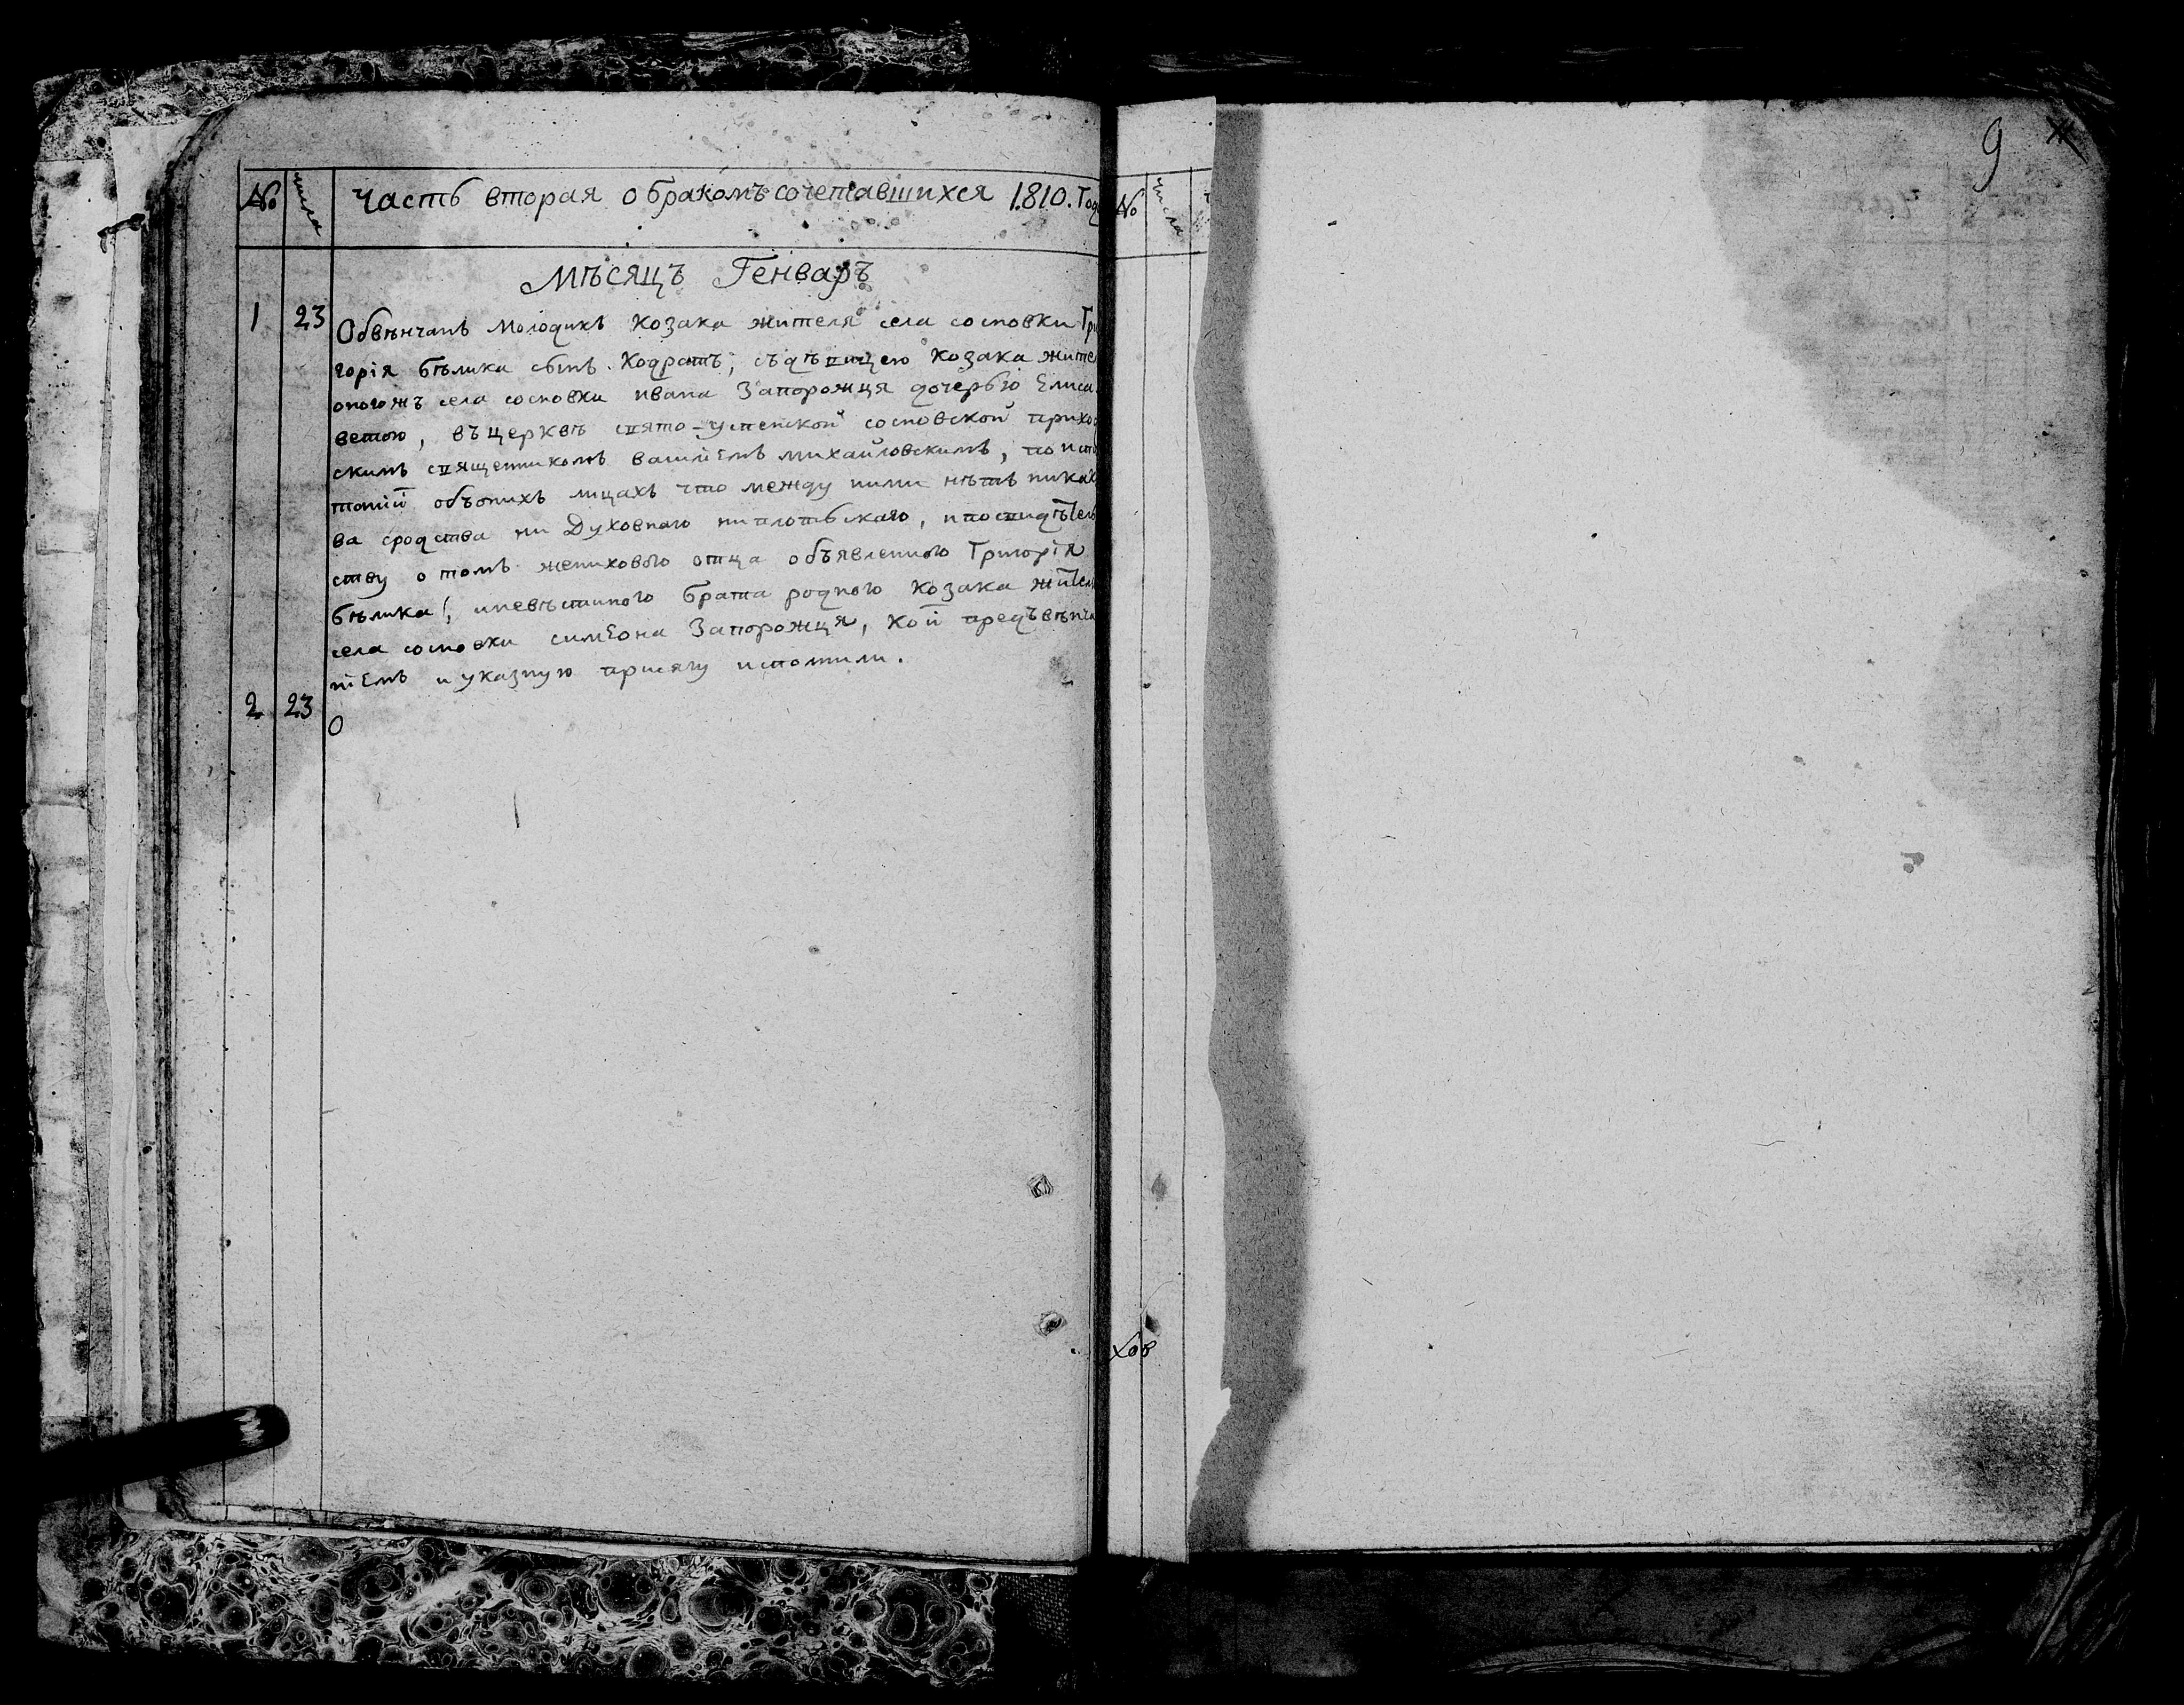 № числа Часть вторая о бракомъ сочетавшихся 1810. Год
Мѣсяцъ Генваръ
1 23 Обвѣнчанъ молодикъ козака жителя села сосновки Гри
горія бѣлика сынъ Кодратъ, съ дѣвицею козака жите
оногожъ села сосновки ивана Запорожця дочерью Елиса
ветою, въ церквѣ свято-успенской сосновской приход
скимъ священикомъ василіемъ михайловскимъ, по
объонихъ лицахъ что между ними нѣтъ никак
ва сродства ни Духовнаго ниплотьскаго, ипосвидѣтель
ству о томъ женихового отца объявленного Григорія
бѣлика, иневѣстиного брата родного козака жител
села сосновки симеона Запорожця, кой предъ вѣнча
ніемъ и указную присягу исполнили.
2 23 О
№ числа
9
хов